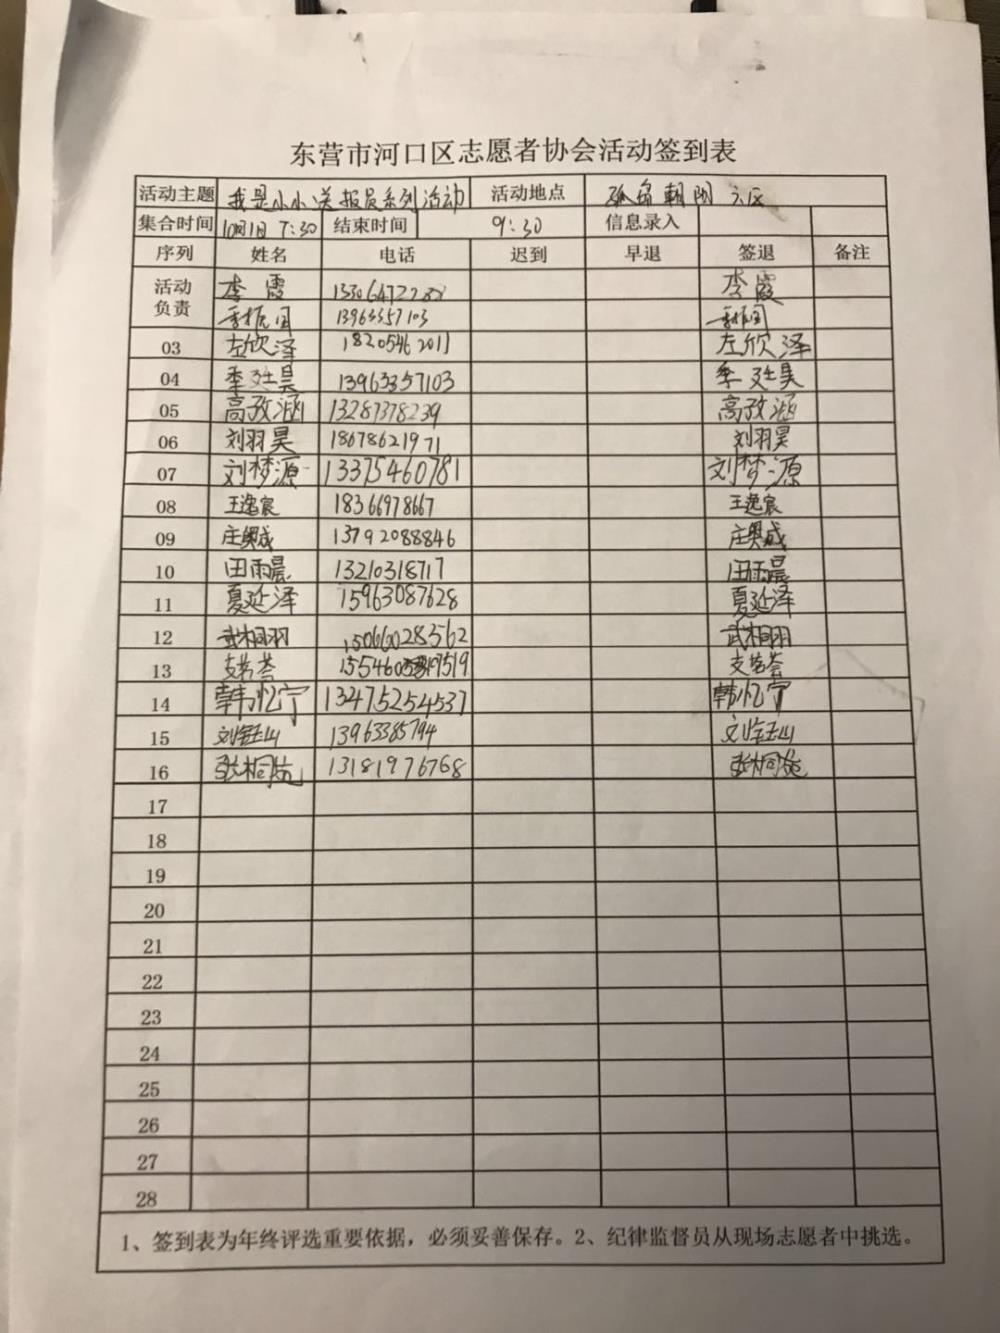 东营市河口区志愿者协会活动签到表
活动主题 我是小小送报员系列活动 活动地点 孤岛朝阳六区
集合时间 10月1日 7:30 结束时间 9:30 信息录入
序列 姓名 电话 迟到 早退 签退 备注
活动负责 李霞 李霞
季振国 13963357103 季振国
03 左欣泽 18205462011 左欣泽
04 季廷昊 13963357103 季廷昊
05 高孜涵 13287378239 高孜涵
06 刘羽昊 18678621971 刘羽昊
07 刘梦源 13375460781 刘梦源
08 王逸宸 18366978667 王逸宸
09 庄奥成 13792088846 庄奥成
10 田雨晨 13210318717 田雨晨
11 夏延泽 15963087628 夏延泽
12 武桐羽 15066028562 武桐羽
13
14 韩忆宁 13475254537 韩忆宁
15 刘钰山 13963385794 刘钰山
16 张桐 13181976768 张桐
17
18
19
20
21
22
23
24
25
26
27
28
1、签到表为年终评选重要依据，必须妥善保存。2、纪律监督员从现场志愿者中挑选。